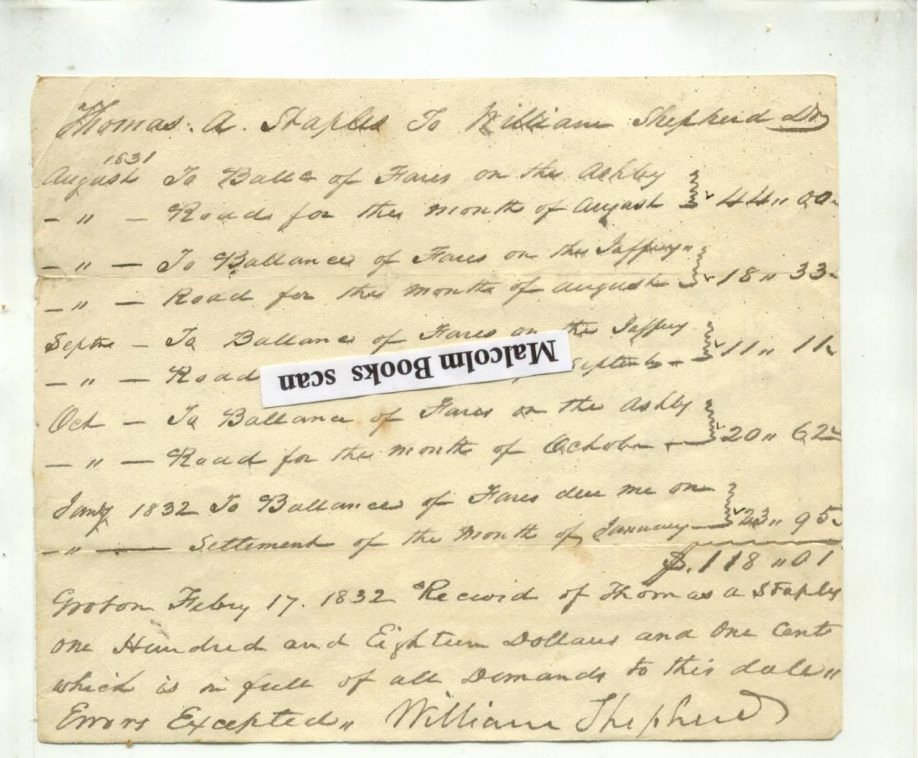 Thomas. A. Staples To William Shepherd Dr
1831
August To Ballce of Fares on the Ashby
– " – Roads for the month of August 44 " 00
– " – To Ballances of Fares on the Jaffrey "
– " – Road for the month of August 18 " 33
Septr – To Ballance of Fares on the Jaffrey
– " – Road September – 11 " 11
Malcolm Books scan
Oct – To Ballance of Fares on the Ashby
– " – Road for the month of October – 20 " 62
Jany 1832 To Ballances of Fares due me on
– " – Settement of the Month of January – 23 " 95
$. 118 " 01
Groton Febry 17. 1832 Recivd of Thomas a Staples
one Hundred and Eighteen Dollars and one Cent
which is in full of all Demands to this date "
Errors Excepted " William Shepherd